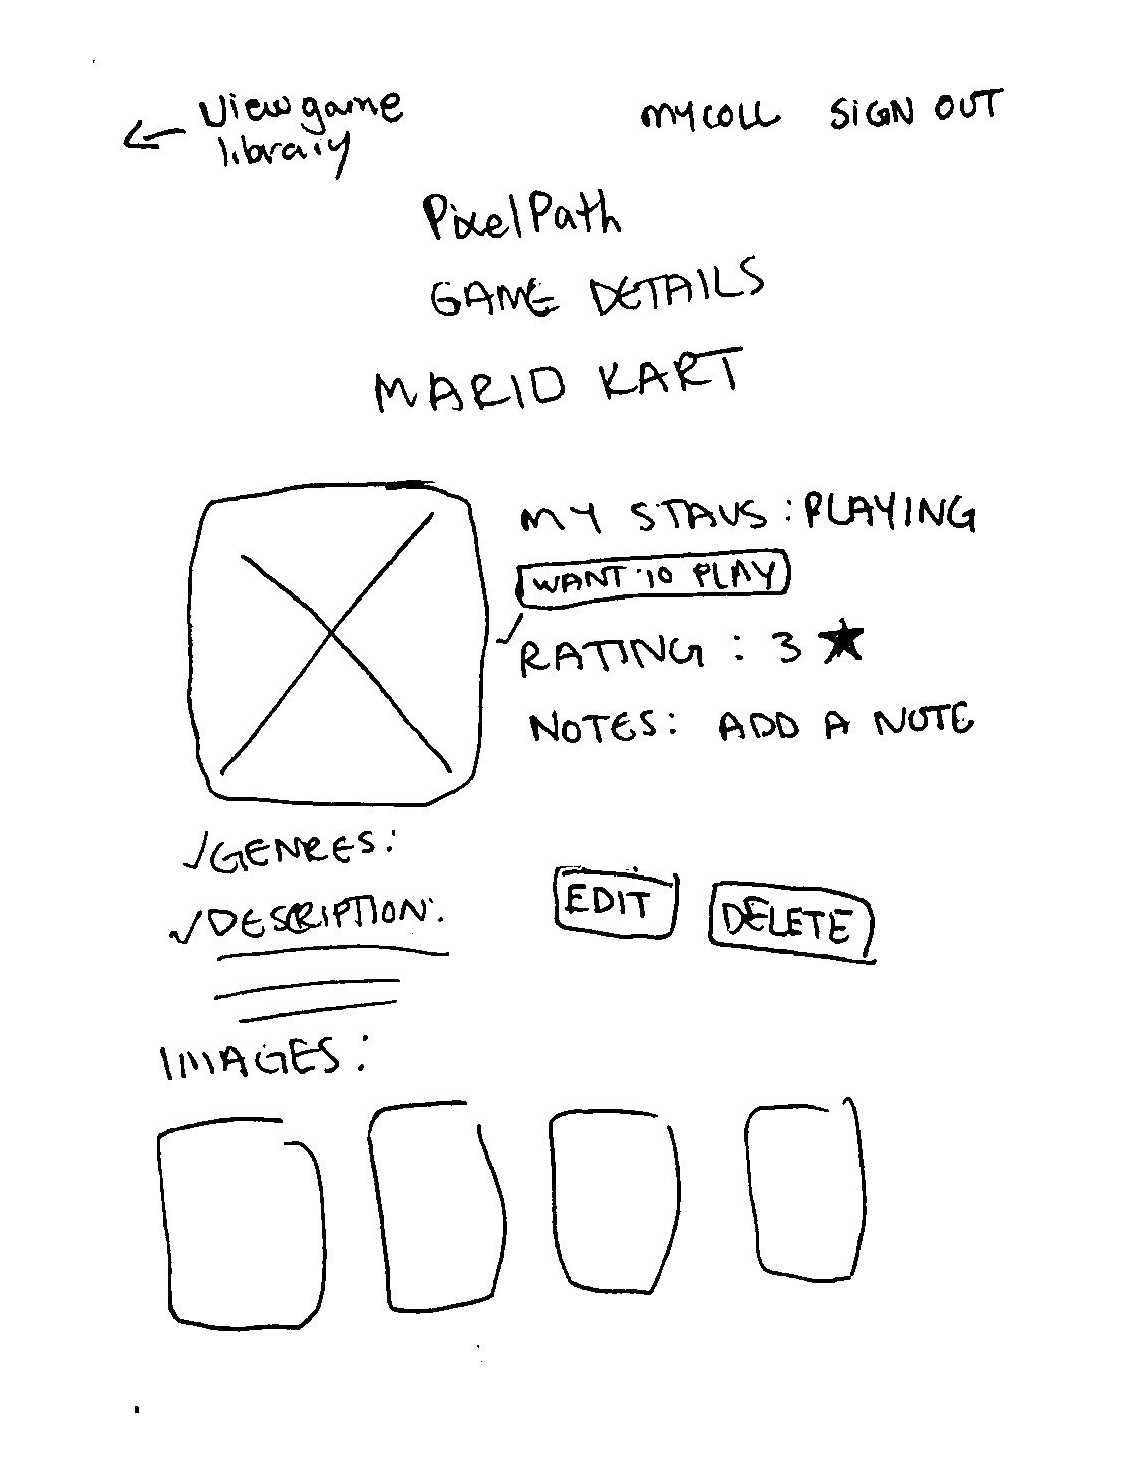 ← View game
library
MY COLL SIGN OUT
PixelPath
GAME DETAILS
MARIO KART
MY STAUS : PLAYING
WANT TO PLAY
RATING : 3 ★
NOTES: ADD A NOTE
✓GENRES:
✓DESCRIPTION:
EDIT DELETE
IMAGES: